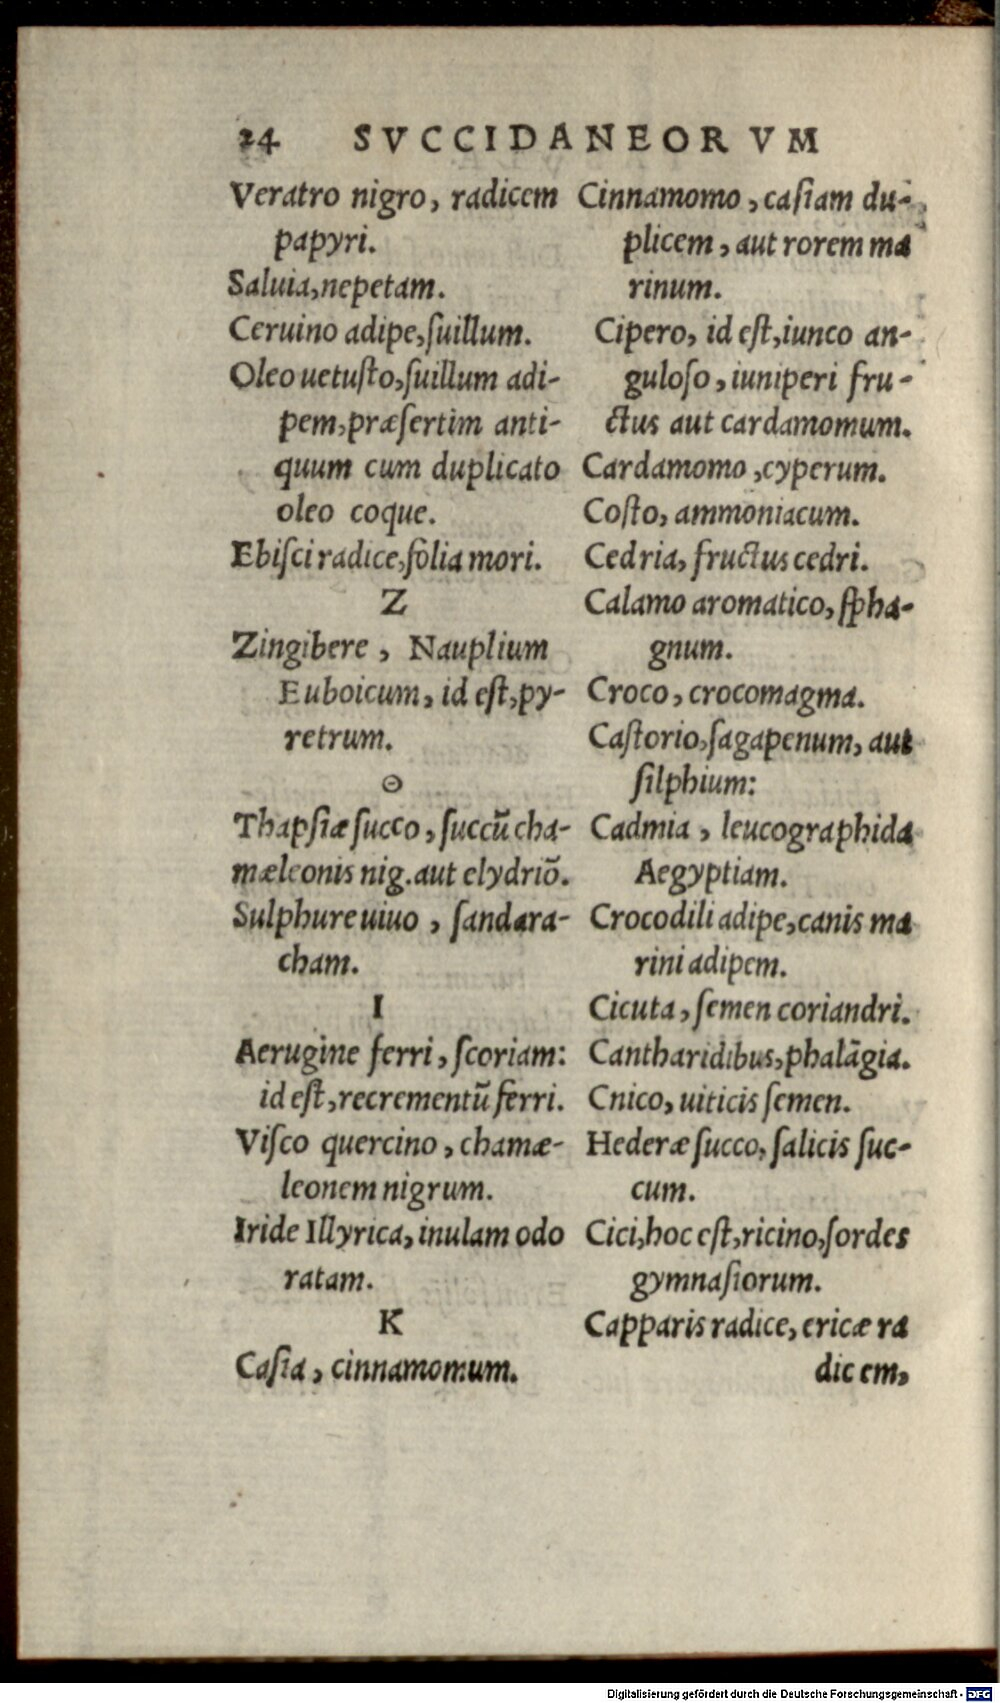 24 SVCCIDANEORVM
Veratro nigro, radicem
papyri.
Saluia, nepetam.
Ceruino adipe, ſuillum.
Oleo uetuſto, ſuillum adi-
pem, præſertim anti-
quum cum duplicato
oleo coque.
Ebiſci radice, folia mori.
Z
Zingibere, Nauplium
Euboicum, id eſt, py-
retrum.
Θ
Thapſiæ ſucco, ſuccū cha-
mæleonis nig. aut elydriō.
Sulphure uiuo, ſandara-
cham.
I
Aerugine ferri, ſcoriam:
id eſt, recrementū ferri.
Viſco quercino, chamæ-
leonem nigrum.
Iride Illyrica, inulam odo
ratam.
K
Caſia, cinnamomum.
Cinnamomo, caſiam du-
plicem, aut rorem ma
rinum.
Cipero, id eſt, iunco an-
guloſo, iuniperi fru-
ctus aut cardamomum.
Cardamomo, cyperum.
Coſto, ammoniacum.
Cedria, fructus cedri.
Calamo aromatico, ſpha-
gnum.
Croco, crocomagma.
Caſtorio, ſagapenum, aut
ſilphium:
Cadmia, leucographida
Aegyptiam.
Crocodili adipe, canis ma
rini adipem.
Cicuta, ſemen coriandri.
Cantharidibus, phalāgia.
Cnico, uiticis ſemen.
Hederæ ſucco, ſalicis ſuc-
cum.
Cici, hoc eſt, ricino, ſordes
gymnaſiorum.
Capparis radice, ericæ ra
dicem,
Digitalisierung gefördert durch die Deutsche Forschungsgemeinschaft - DFG